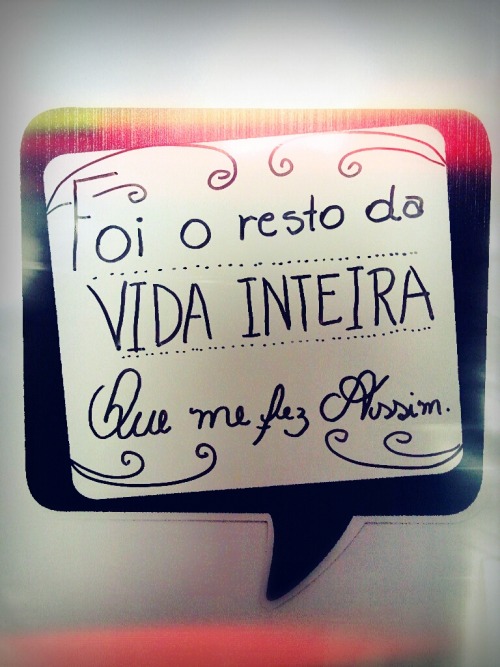 Foi o resto da
VIDA INTEIRA
Que me fez Assim.